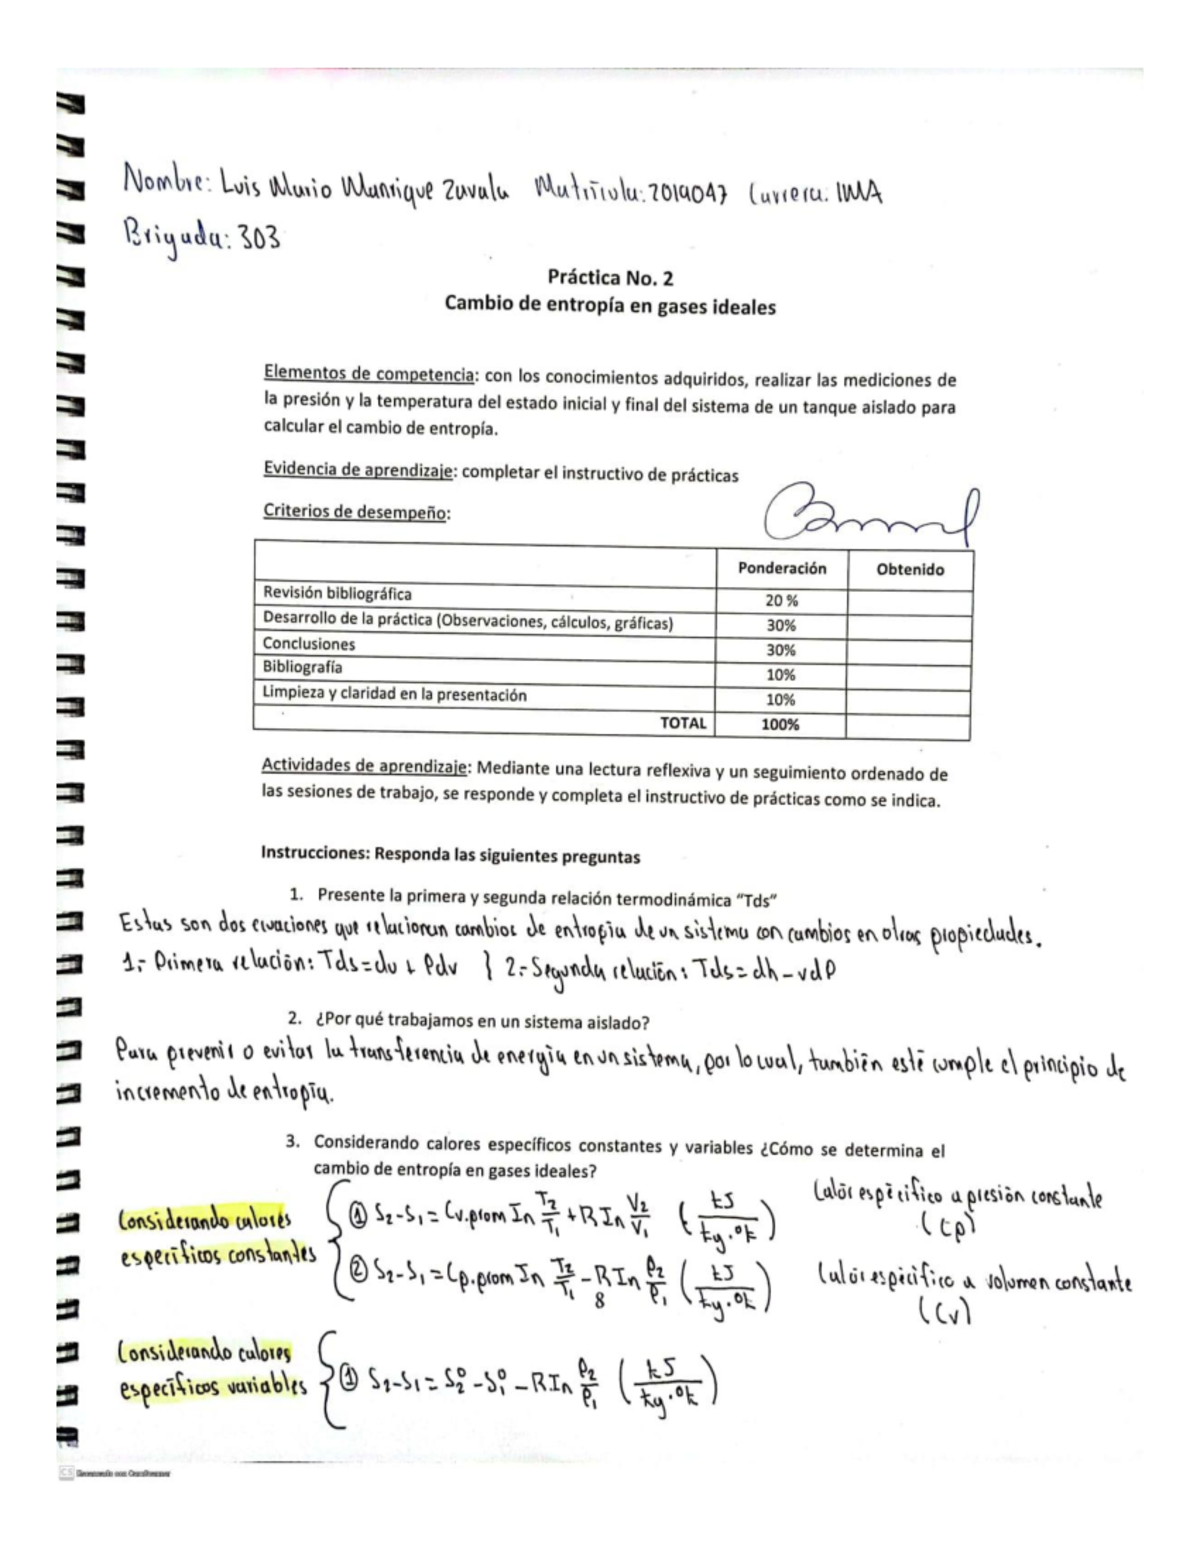 Nombre: Luis Mario Manrique Zavala Matrícula: 2019047 Carrera: IMA
Brigada: 303
Práctica No. 2
Cambio de entropía en gases ideales
Elementos de competencia: con los conocimientos adquiridos, realizar las mediciones de
la presión y la temperatura del estado inicial y final del sistema de un tanque aislado para
calcular el cambio de entropía.
Evidencia de aprendizaje: completar el instructivo de prácticas
Criterios de desempeño:
Ponderación Obtenido
Revisión bibliográfica 20 %
Desarrollo de la práctica (Observaciones, cálculos, gráficas) 30%
Conclusiones 30%
Bibliografía 10%
Limpieza y claridad en la presentación 10%
TOTAL 100%
Actividades de aprendizaje: Mediante una lectura reflexiva y un seguimiento ordenado de
las sesiones de trabajo, se responde y completa el instructivo de prácticas como se indica.
Instrucciones: Responda las siguientes preguntas
1. Presente la primera y segunda relación termodinámica "Tds"
Estas son dos ecuaciones que relacionan cambios de entropía de un sistema con cambios en otras propiedades.
1.- Primera relación: Tds=du + Pdv } 2.- Segunda relación: Tds=dh-vdP
2. ¿Por qué trabajamos en un sistema aislado?
Para prevenir o evitar la transferencia de energía en un sistema, por lo cual, también esté cumple el principio de
incremento de entropía.
3. Considerando calores específicos constantes y variables ¿Cómo se determina el
cambio de entropía en gases ideales?
Considerando calores específicos constantes { ① S2-S1 = Cv.prom In T2/T1 + R In V2/V1 (kJ/kg.°k) Calór espècifico a presión constante (cp)
② S2-S1 = Cp.prom In T2/T1 - R In P2/P1 (kJ/kg.°k) Calór espècifico a volumen constante (Cv)
8
Considerando calores específicos variables { ① S2-S1 = S2° - S1° - R In P2/P1 (kJ/kg.°k)
CS Escaneado con CamScanner